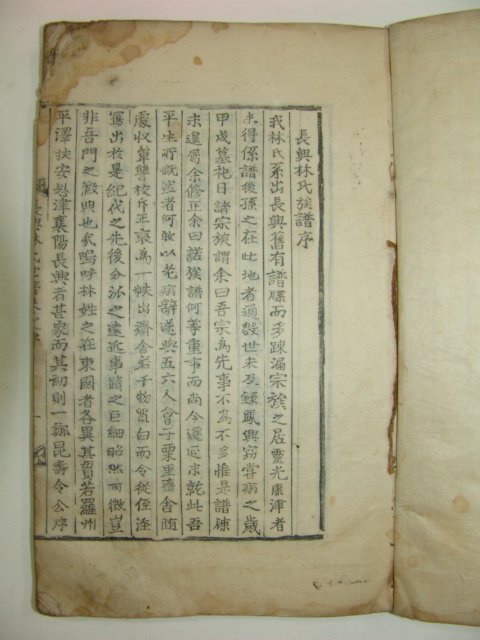 長興林氏族譜序
我林氏系出長興舊有譜牒而多疎漏宗族之居靈光康津者
未得係譜後孫之在比地者過數世未及錄鳳興竊嘗病之歲
甲戌墓祀日諸宗族謂余曰吾宗為先事不為不多惟是譜牒
未遑屬余修正余曰諾族譜何等重事而尚今遷延未乾此吾
平生所慨然者何敢以老病辭遂與五六人會于栗里齋舍随
處収單讐校斥正裒為一帙出齋舍若干物質白而令從侄
寫出於是紀代之先後分派之遠近事蹟之巨細昭然可徵豈
非吾門之徽典也哉嗚呼林姓之在東國者各異其貫若羅州
平澤扶安蔚津襄陽長興者甚衆而其初則一諱昆壽令公序
長興林氏世譜卷之序